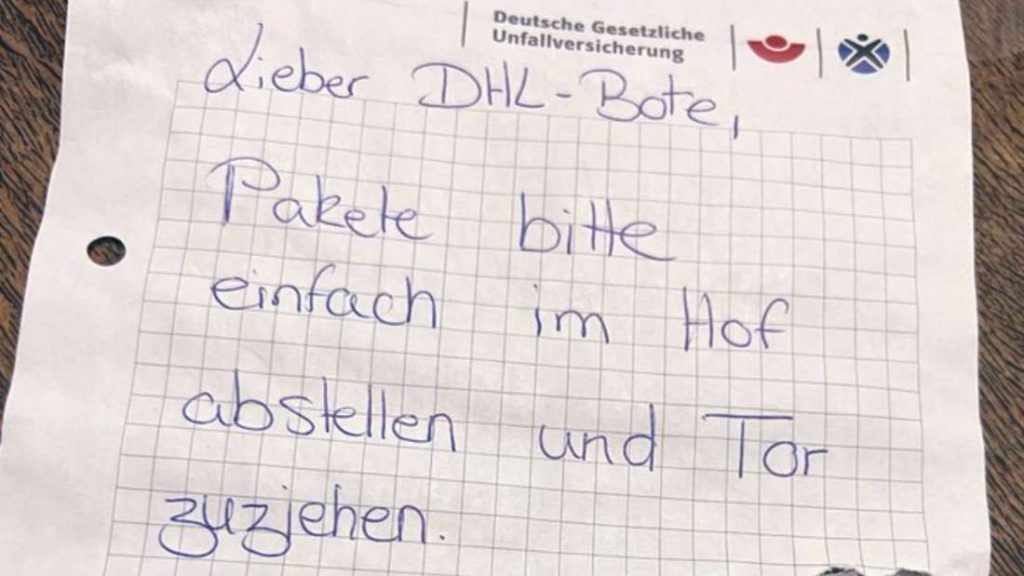 Deutsche Gesetzliche
Unfallversicherung
Lieber DHL-Bote,
Pakete bitte
einfach im Hof
abstellen und Tor
zuziehen.